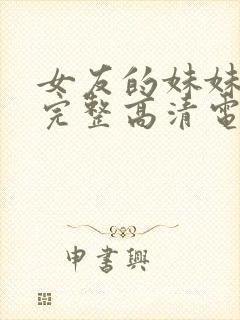 女友的妹妹
完整高清電
申書興